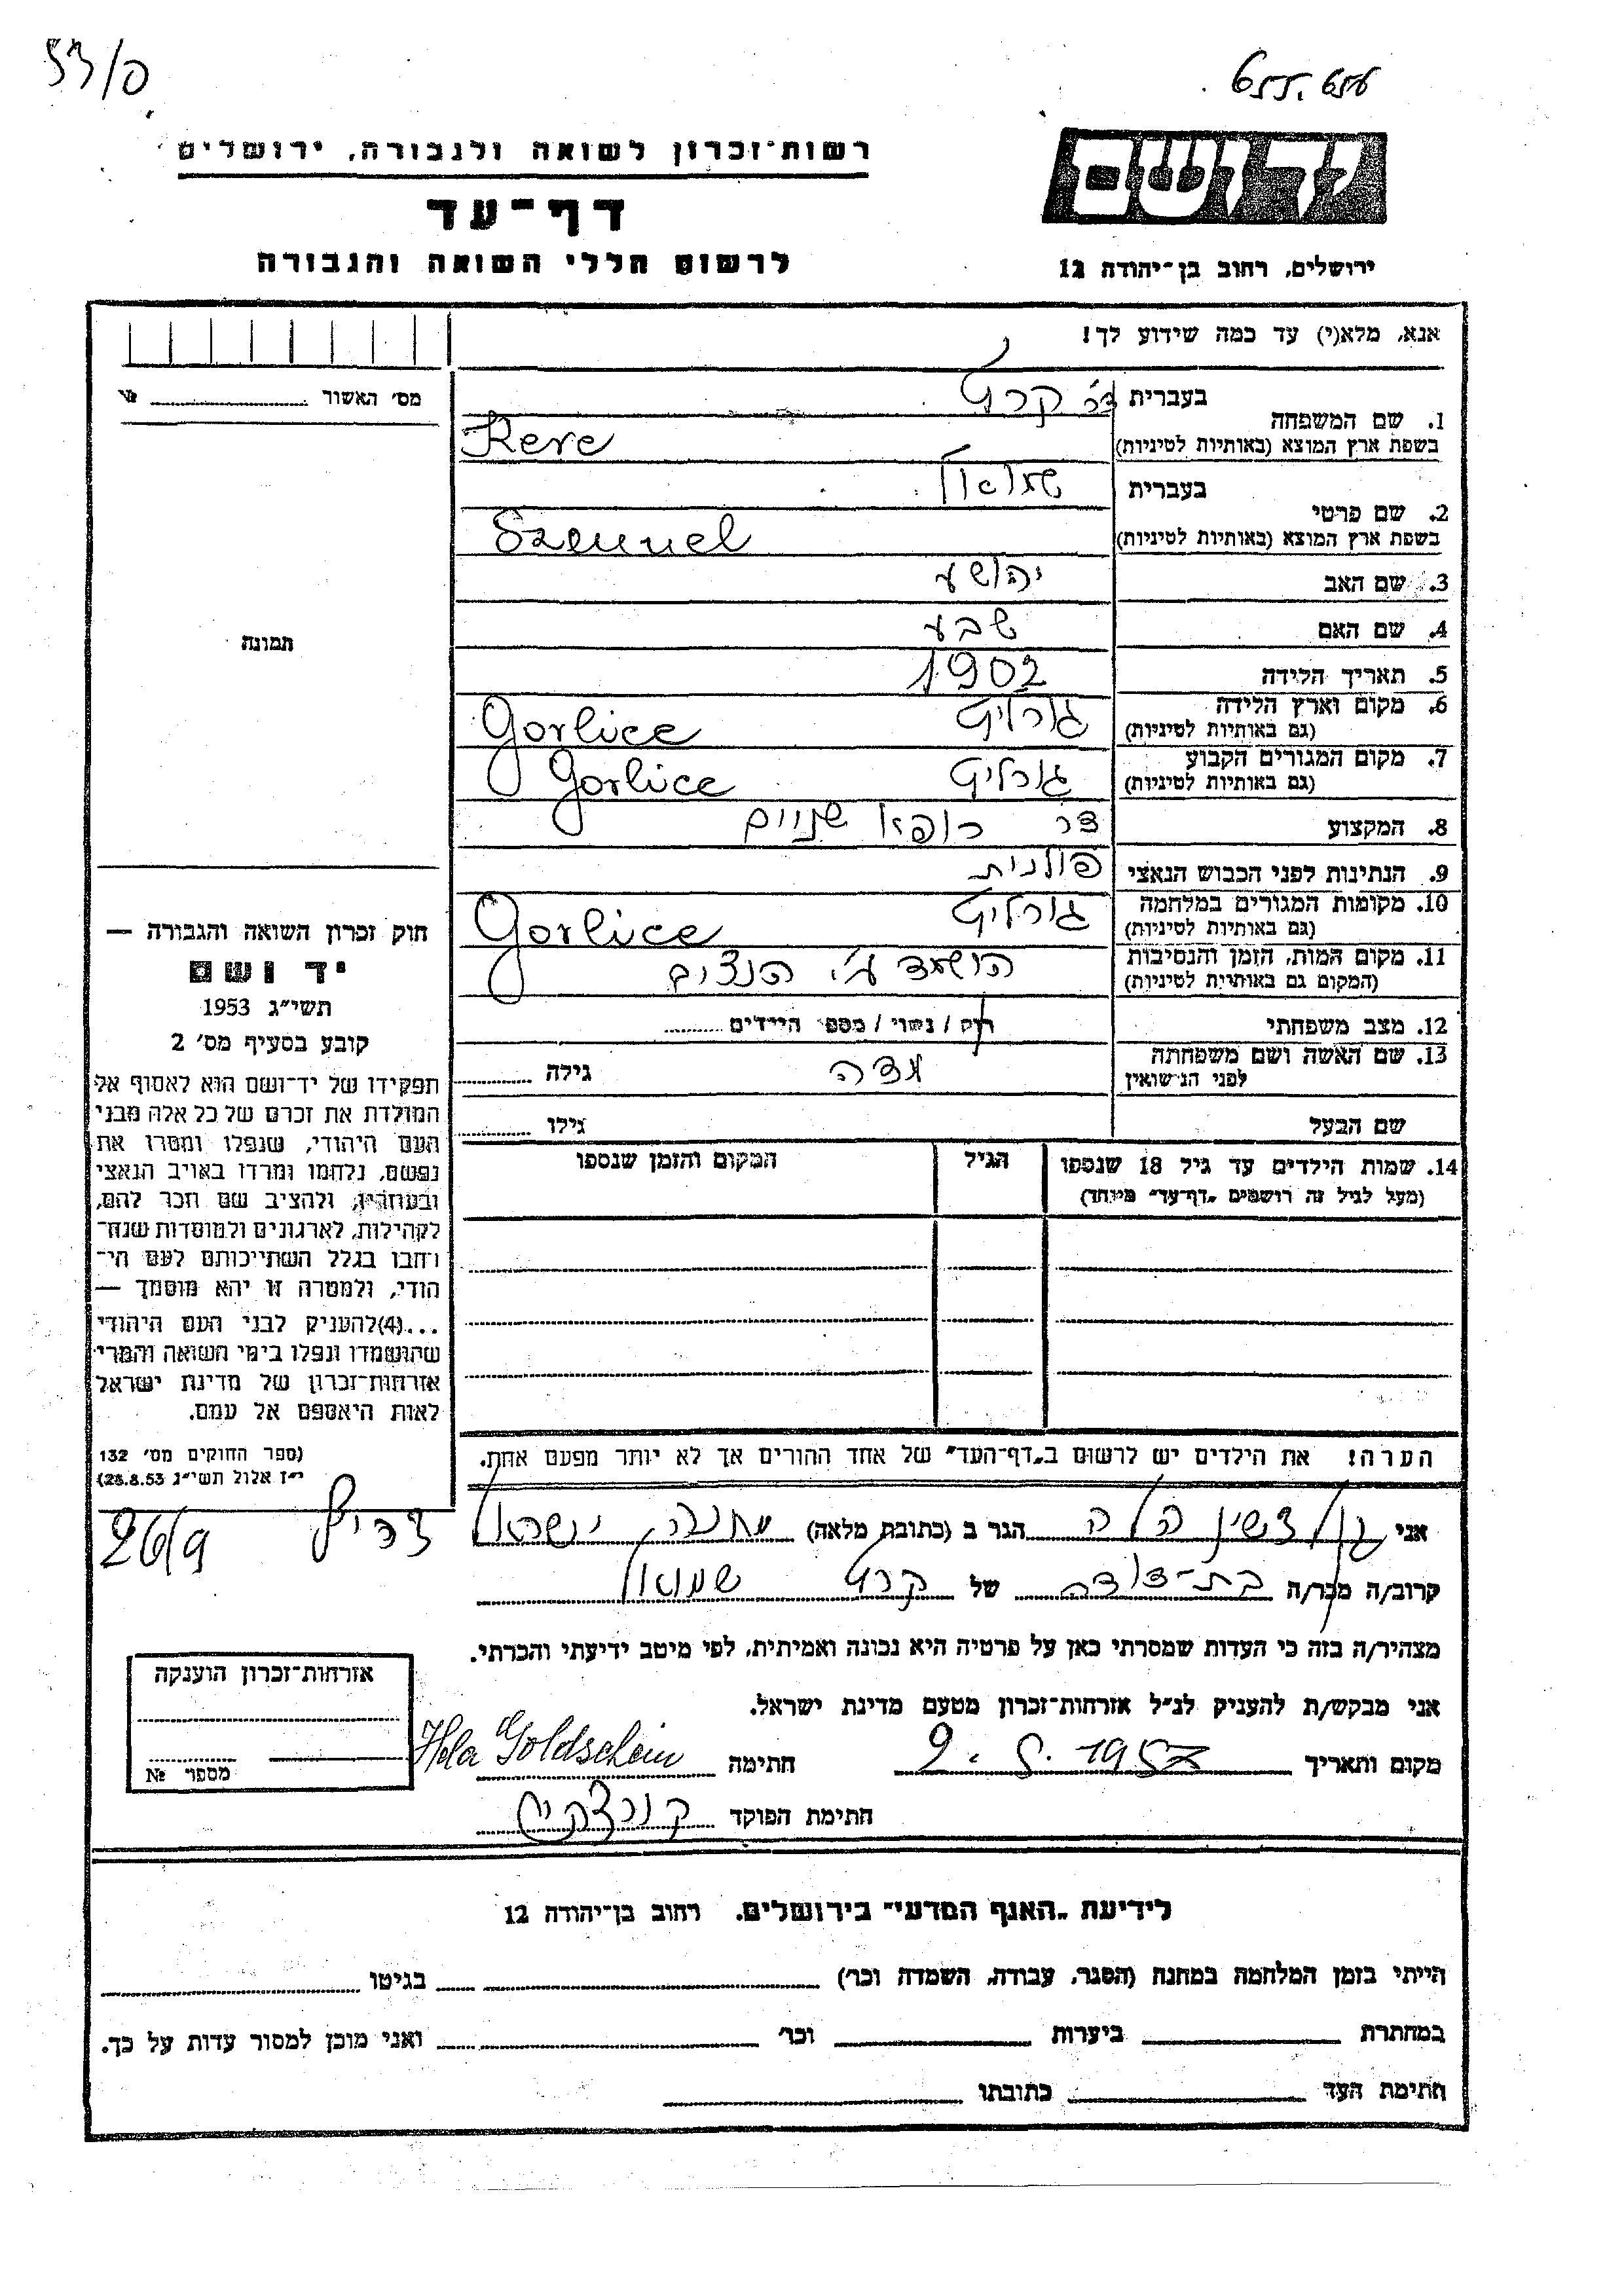 רשות־זכרון לשואה ולגבורה, ירושלים
דף־עד
לרשום חללי השואה והגבורה
ידושם
ירושלים, רחוב בן־יהודה 12
אנא, מלא(י) עד כמה שידוע לך!
מס' האשור №
תמונה
1. שם המשפחה
בעברית ד״ר קרץ
בשפת ארץ המוצא (באותיות לטיניות) Kerc
2. שם פרטי
בעברית שמואל
בשפת ארץ המוצא (באותיות לטיניות) Szmuel
3. שם האב יהושע
4. שם האם שבע
5. תאריך הלידה 1902
6. מקום וארץ הלידה גורליץ Gorlice
(גם באותיות לטיניות)
7. מקום המגורים הקבוע גורליץ Gorlice
(גם באותיות לטיניות)
8. המקצוע דר רופא שניים
9. הנתינות לפני הכבוש הנאצי פולנית
10. מקומות המגורים במלחמה גורליץ Gorlice
(גם באותיות לטיניות)
11. מקום המות, הזמן והנסיבות הושמד ע״י הנצים
(המקום גם באותיות לטיניות)
12. מצב משפחתי רוק / נשוי / מספר הילדים
13. שם האשה ושם משפחתה גילה
לפני הנישואין
שם הבעל גילו
14. שמות הילדים עד גיל 18 שנספו הגיל המקום והזמן שנספו
(מעל לגיל זה רושמים „דף־עד״ מיוחד)
הערה! את הילדים יש לרשום ב„דף־העד״ של אחד ההורים אך לא יותר מפעם אחת.
חוק זכרון השואה והגבורה —
יד ושם
תשי״ג 1953
קובע בסעיף מס' 2
תפקידו של יד־ושם הוא לאסוף אל
המולדת את זכרם של כל אלה מבני
העם היהודי, שנפלו ומסרו את
נפשם, נלחמו ומרדו באויב הנאצי
ובעוזריו, ולהציב שם וזכר להם,
לקהילות, לארגונים ולמוסדות שנח־
רחבו בגלל השתייכותם לעם הי־
הודי, ולמטרה זו יהא מוסמך —
...(4)להעניק לבני העם היהודי
שהושמדו ונפלו בימי השואה והמרי
אזרחות־זכרון של מדינת ישראל
לאות היאספם אל עמם.
(ספר החוקים מס' 132
י״ז אלול תשי״ג 28.8.53)
אני גולדשין הלה הגר ב (כתובת מלאה) מחנה ישראל צריף 26/9
קרוב/ה מכר/ה בת־דודה של קרץ שמואל
מצהיר/ה בזה כי העדות שמסרתי כאן על פרטיה היא נכונה ואמיתית, לפי מיטב ידיעתי והכרתי.
אני מבקש/ת להעניק לנ״ל אזרחות־זכרון מטעם מדינת ישראל.
מקום ותאריך 9. 5. 1957 חתימה Hela Goldschein
חתימת הפוקד
אזרחות־זכרון הוענקה
מספר №
לידיעת „האגף המדעי״ בירושלים, רחוב בן־יהודה 12
הייתי בזמן המלחמה במחנה (הסגר, עבודה, השמדה וכר') בגיטו
במחתרת ביערות וכר' ואני מוכן למסור עדות על כך.
חתימת העד כתובתו